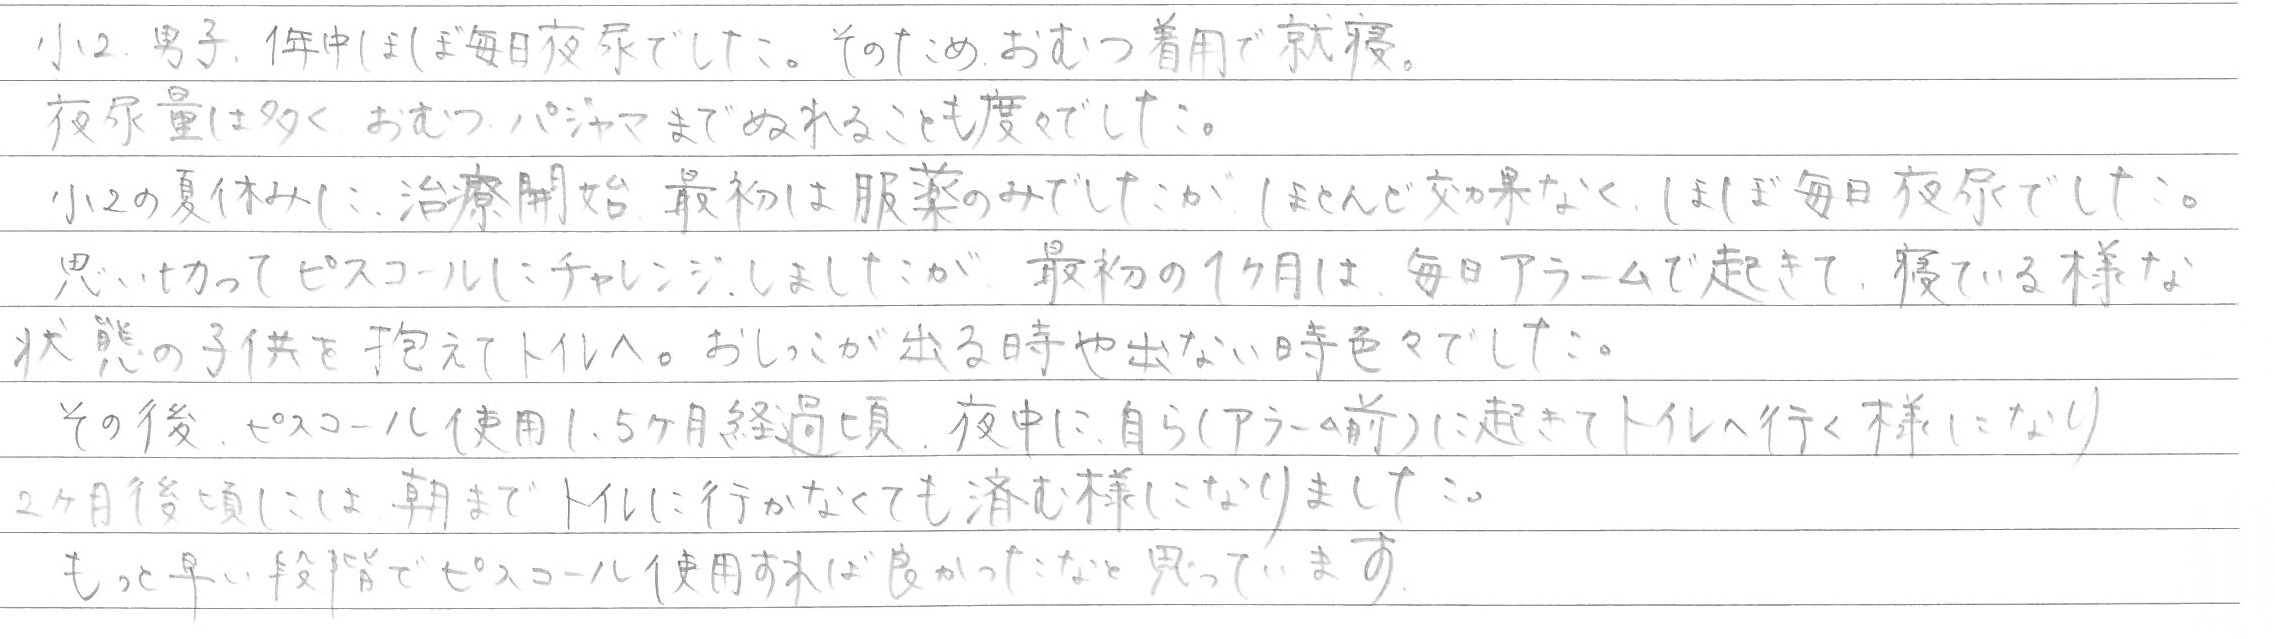 小2、男子、1年中ほぼ毎日夜尿でした。そのため、おむつ着用で就寝。
夜尿量は多く、おむつ、パジャマまでぬれることも度々でした。
小2の夏休みに、治療開始、最初は服薬のみでしたが、ほとんど効果なく、ほぼ毎日夜尿でした。
思い切ってピスコールにチャレンジしましたが、最初の1ヶ月は、毎日アラームで起きて、寝ている様な
状態の子供を抱えてトイレへ。おしっこが出る時や出ない時色々でした。
その後、ピスコール使用1.5ヶ月経過頃、夜中に、自ら(アラーム前)に起きてトイレへ行く様になり
2ヶ月後頃には、朝までトイレに行かなくても済む様になりました。
もっと早い段階でピスコール使用すれば良かったなと思っています。